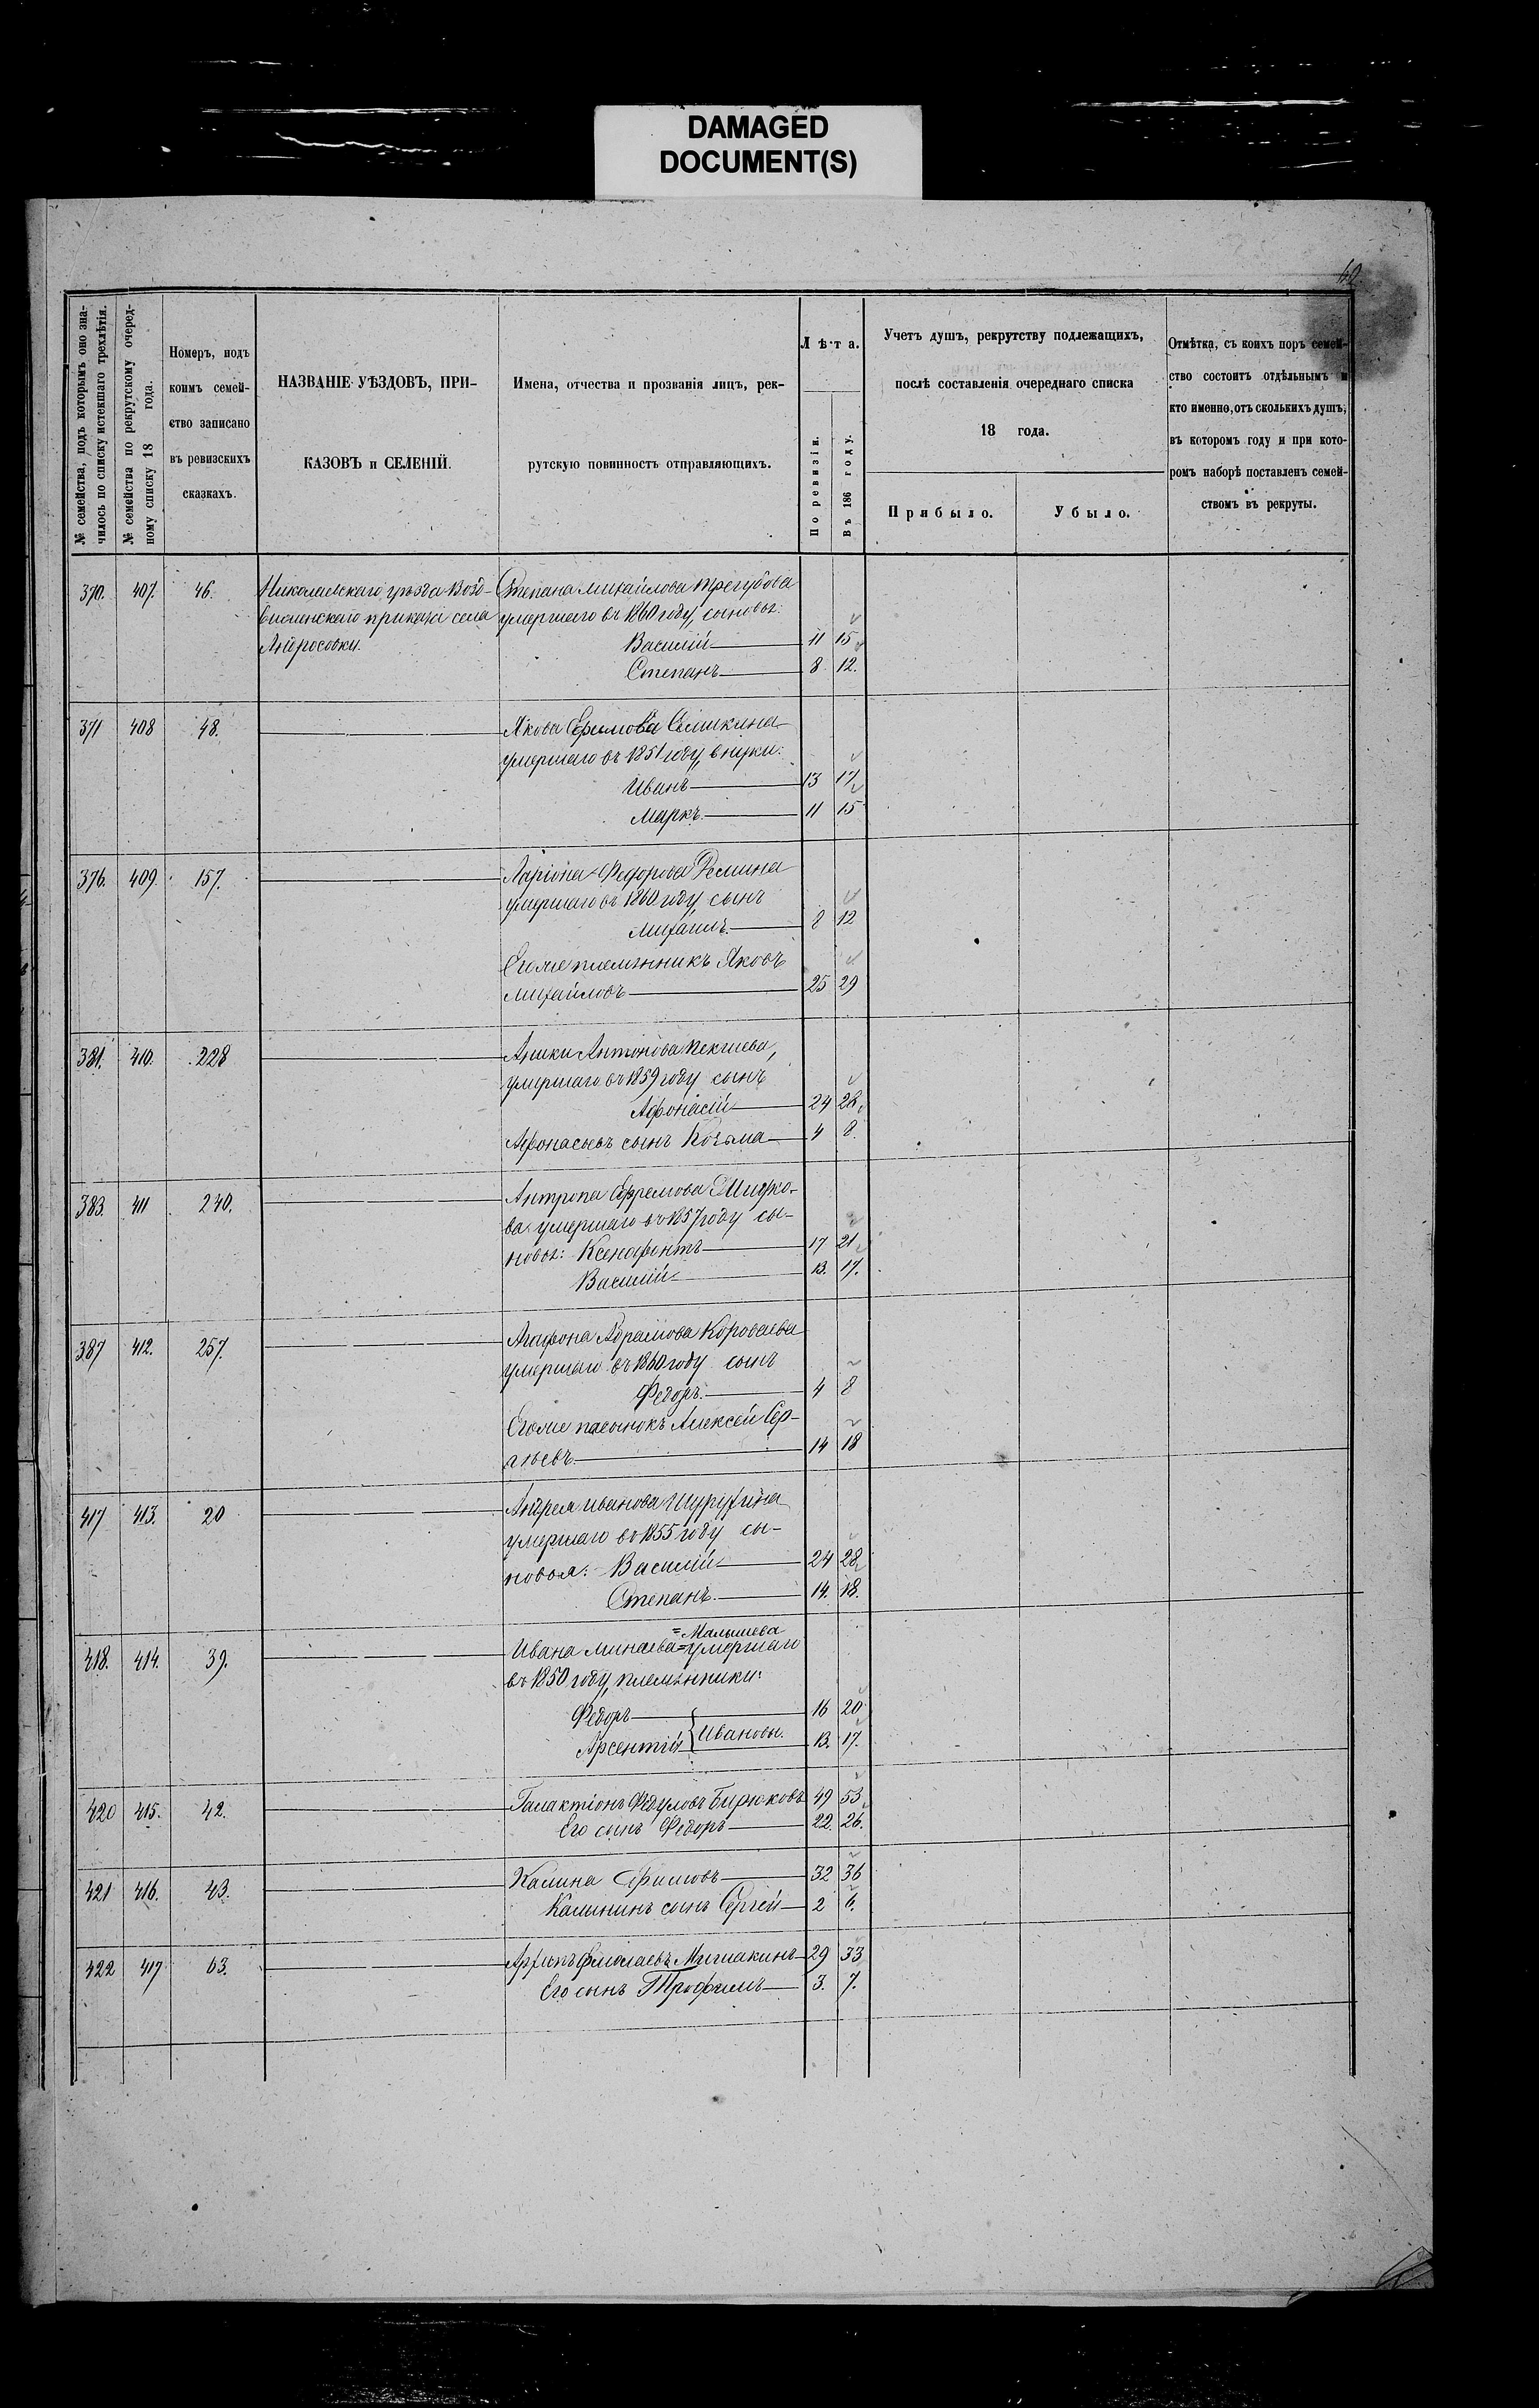 DAMAGED
DOCUMENT(S)
№ семейства, подъ которымъ оно зна-
чилось по списку истекшаго трехлѣтія.
№ семейства по рекрутскому очеред-
ному списку 18 года.
Номеръ, подъ
коимъ семей-
ство записано
въ ревизскихъ
сказкахъ.
НАЗВАНІЕ УѢЗДОВЪ, ПРИ-
КАЗОВЪ и СЕЛЕНІЙ.
Имена, отчества и прозванія лицъ, рек-
рутскую повинность отправляющихъ.
Лѣта.
По ревизіи.
Въ 186 году.
Учетъ душъ, рекрутству подлежащихъ,
послѣ составленія очереднаго списка
18 года.
Прибыло.
Убыло.
Отмѣтка, съ коихъ поръ семей-
ство состоитъ отдѣльнымъ и
кто именно, отъ сколькихъ душъ,
въ котором году и при кото-
ромъ наборѣ поставленъ семей-
ствомъ въ рекруты.
370. 407. 46. Николаевскаго уѣзда Возд- Степана Михайлова Трегубова
виженскаго приказа села умершаго въ 1860 году, сыновья:
Андросовки. Василій 11 15
Степанъ 8 12.
371 408 48. Якова Ефимова Семикина
умершаго въ 1851 году, внуки:
Иванъ 13 17
Маркъ. 11 15
376. 409. 157. Ларіона Федорова Ремина
умершаго въ 1860 году сынъ
Михаилъ. 8 12
Егоже племянникъ Яковъ
Михайловъ 25 29
381. 410. 228 Аники Антонова
умершаго въ 1859 году сынъ
Афонасій 24 28
Афонасьевъ сынъ Козьма 4 8.
383. 411 240. Антропа Ефремова
ва умершаго въ 1857 году сы-
новья: Ксенофонтъ 17 21
Василій 13. 17.
387 412. 257. Агафона Абрамова Короваева
умершаго въ 1860 году сынъ
Федоръ. 4 8
Егоже пасынокъ Алексей Сер-
гѣевъ. 14 18
417 413. 20 Андрея Иванова
умершаго въ 1855 году сы-
новья: Василій 24 28
Степанъ. 14. 18.
=Малышева
418. 414. 39. Ивана Минаева=умершаго
въ 1850 году, племянники:
Федоръ 16 20
Арсентій Ивановы. 13. 17.
420 415. 42. Галактіонъ Федуловъ Бирюковъ 49 53
Его сынъ Федоръ 22. 26.
421 416. 43. Калина 32 36
Калининъ сынъ Сергей 2 6.
422 417 63. 29 33
Его сынъ Трофимъ 3. 7.